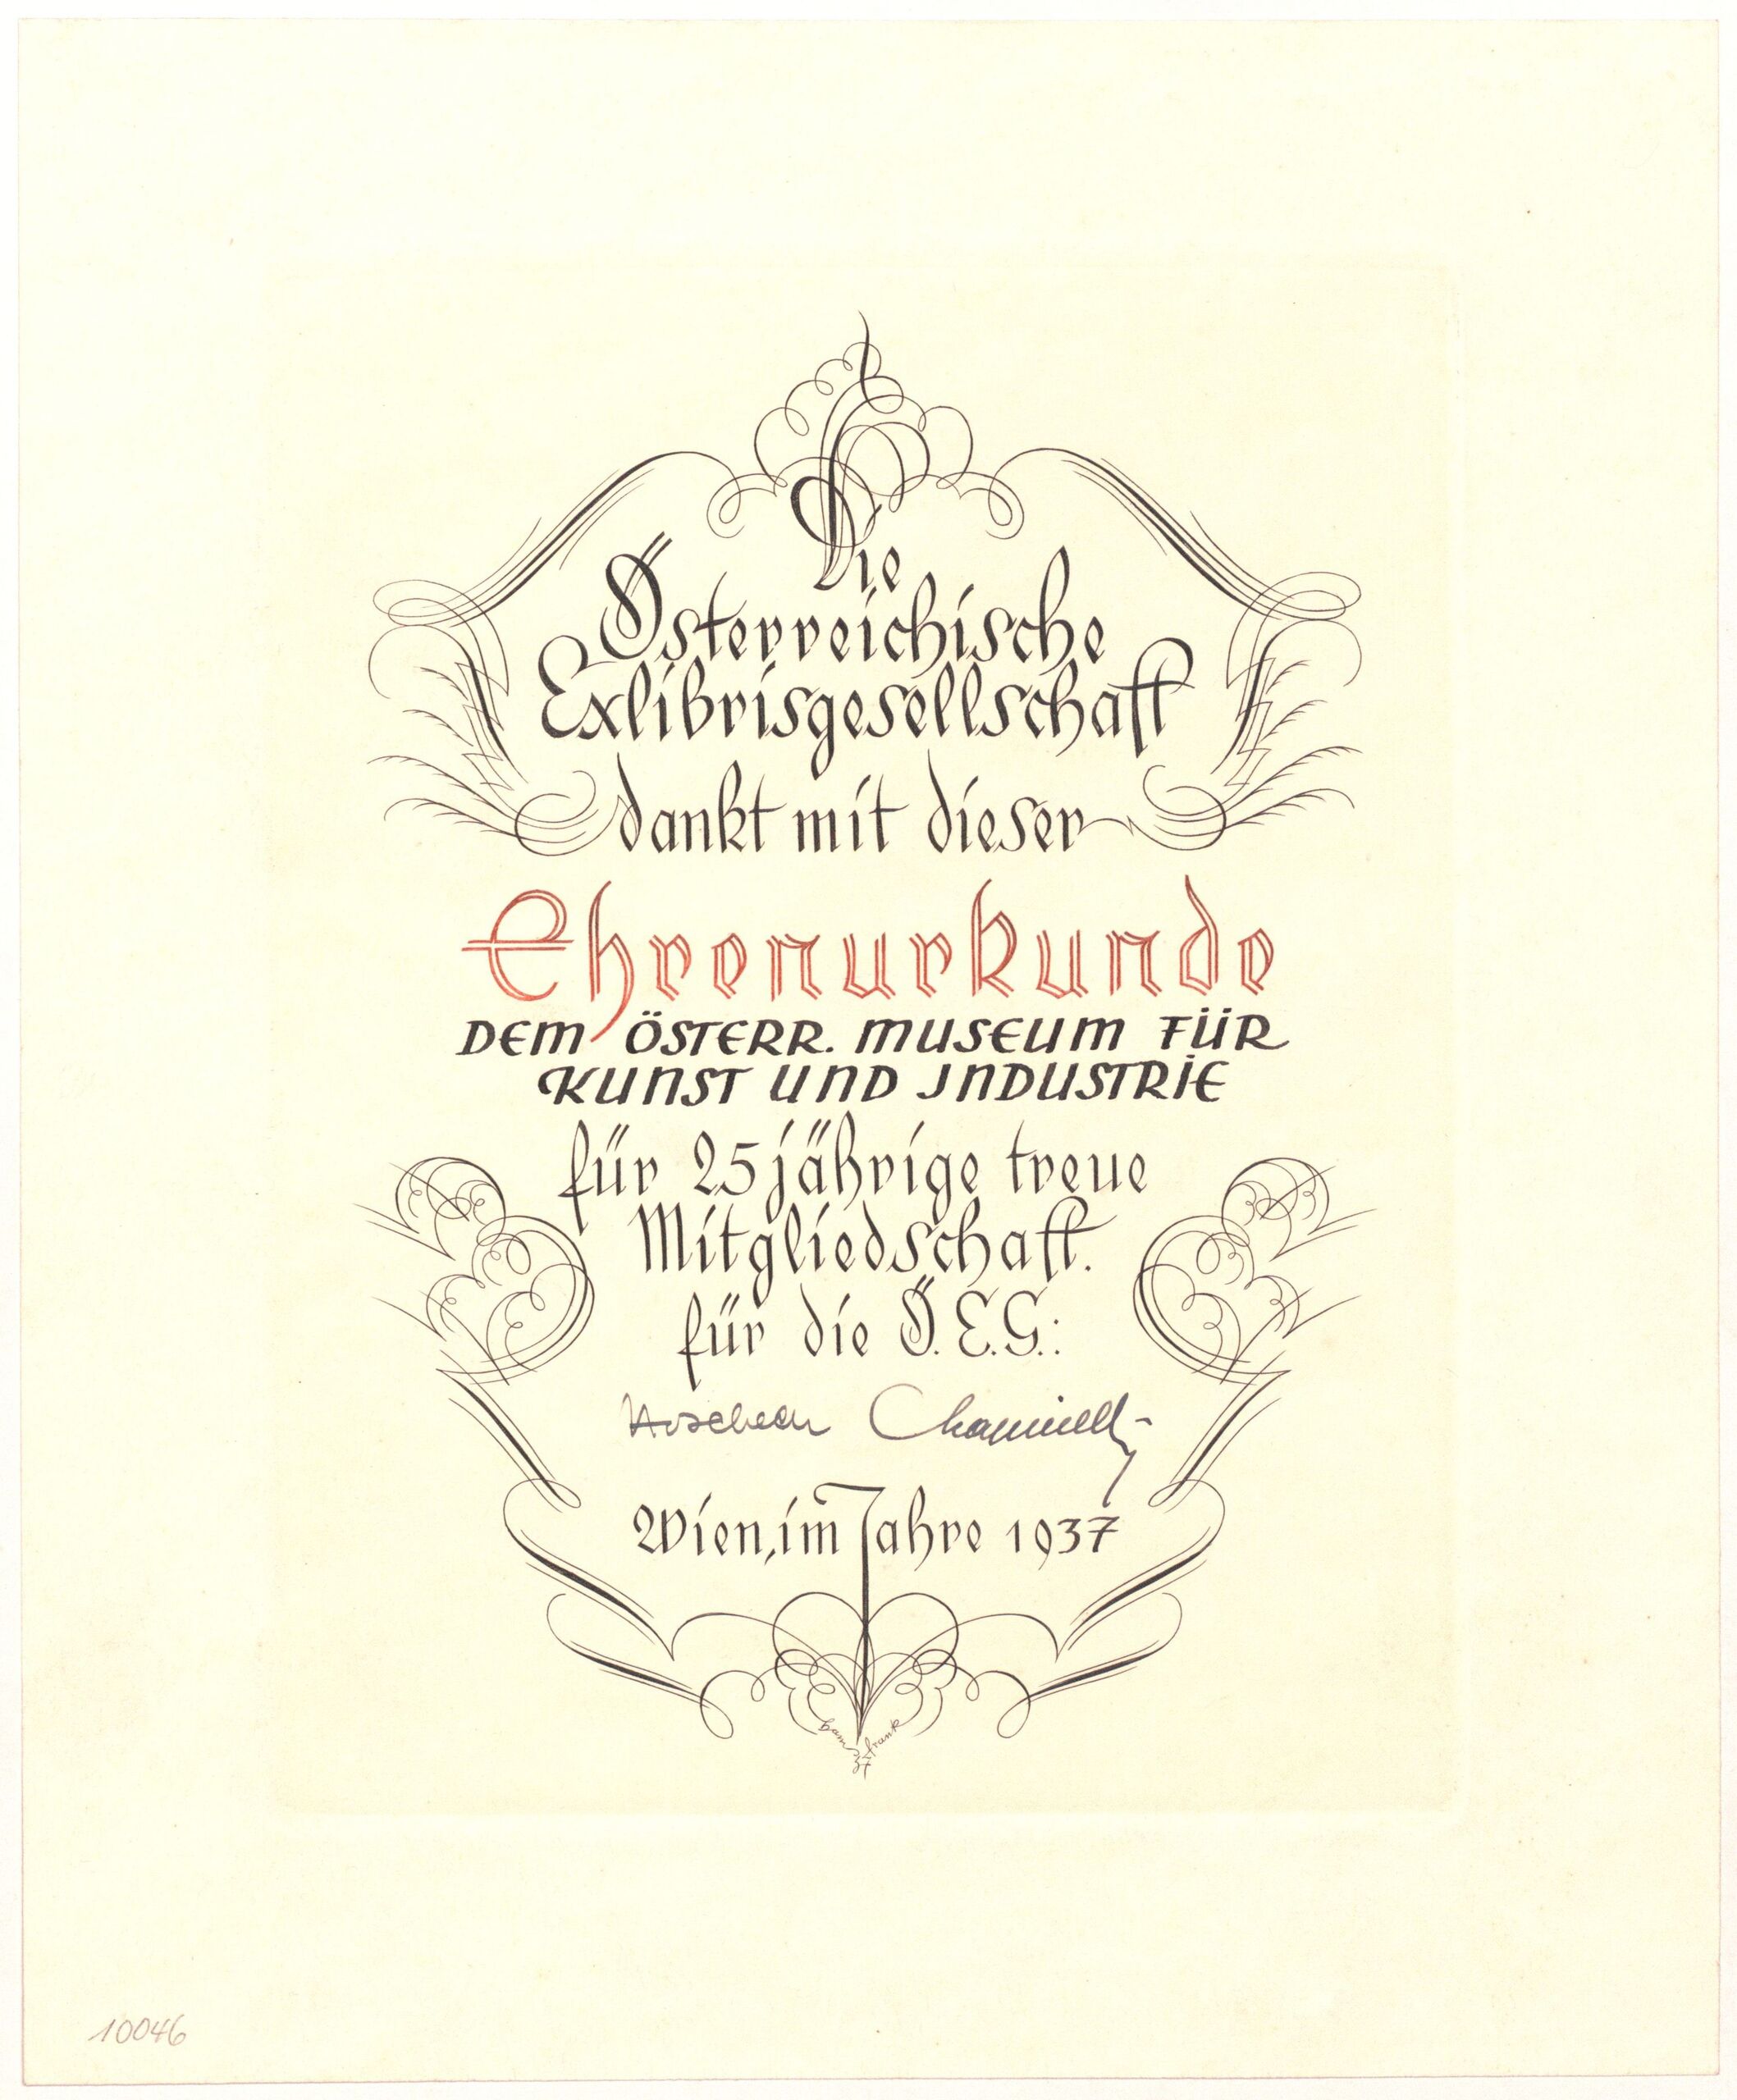 Die
Österreichische
Exlibrisgesellschaft
dankt mit dieser
Ehrenurkunde
DEM ÖSTERR. MUSEUM FÜR
KUNST UND INDUSTRIE
für 25 jährige treue
Mitgliedschaft.
für die Ö.E.G.:
Wien, im Jahre 1937
frank
37
10046